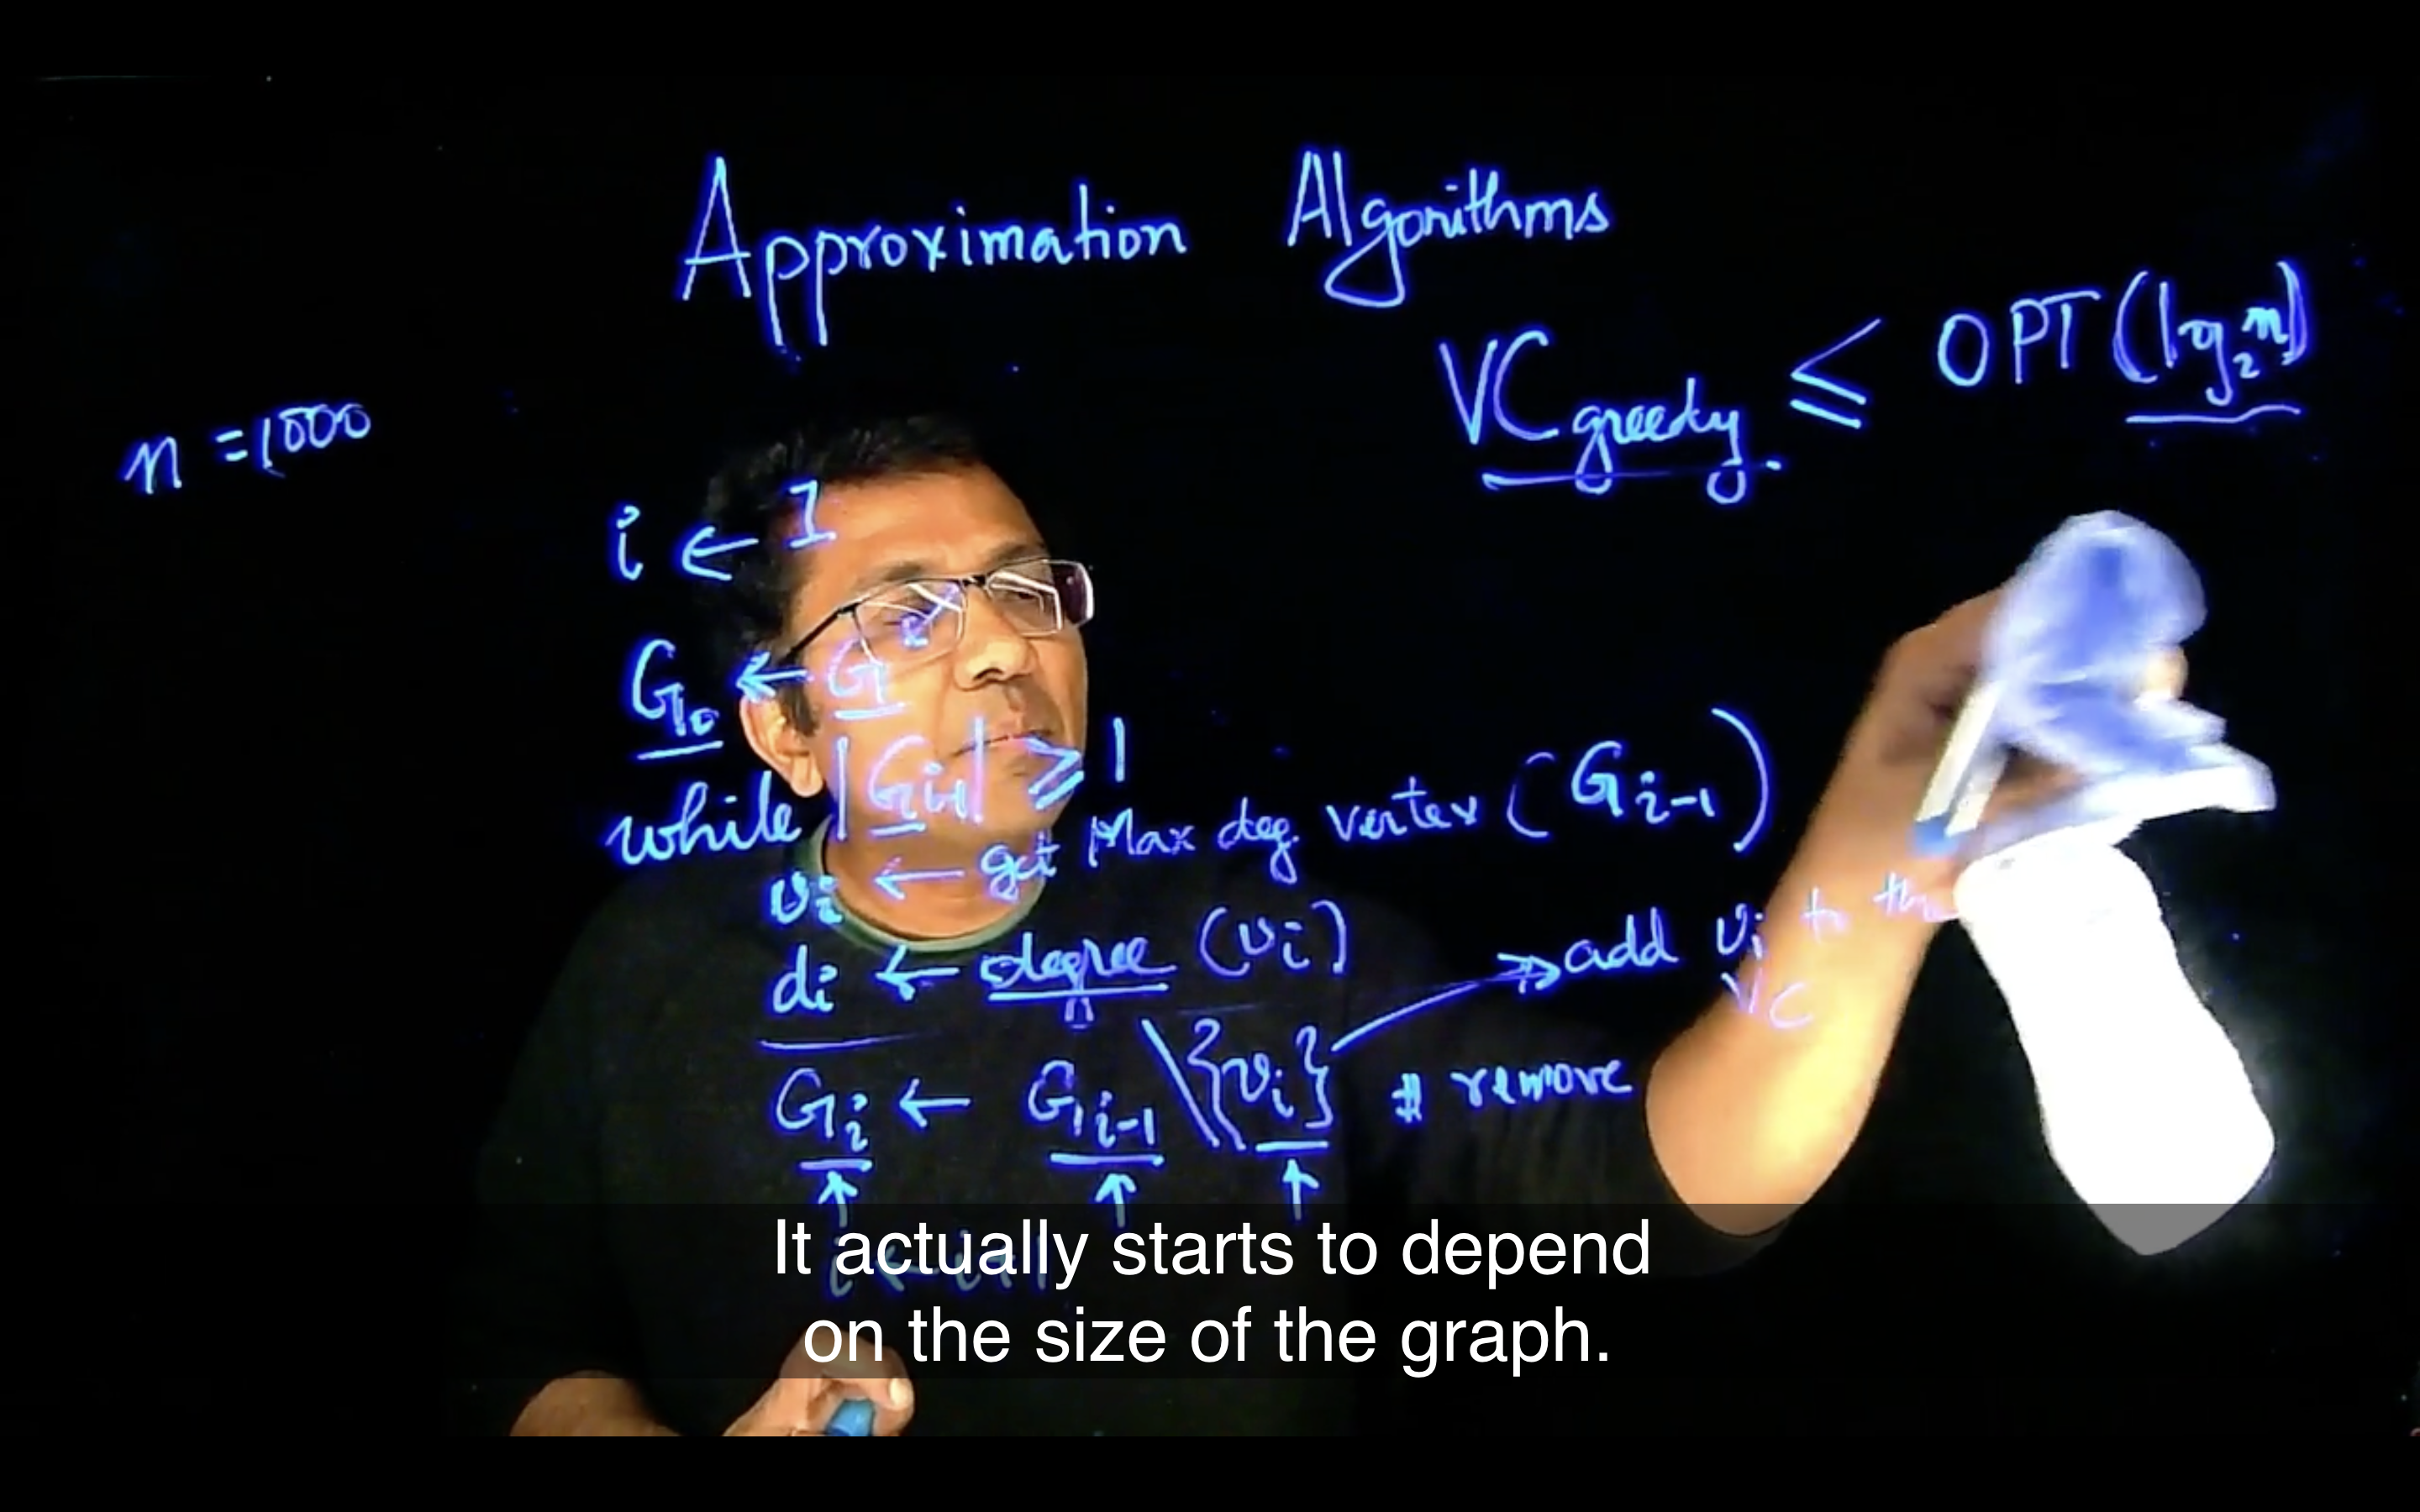 Approximation Algorithms
VC greedy ≤ OPT (log₂n)
n = 1000
i ← 1
G₀ ← G
while |Gᵢ₋₁| ≥ 1
vᵢ ← get Max deg. vertex (Gᵢ₋₁)
dᵢ ← degree (vᵢ)
add vᵢ to the
VC
Gᵢ ← Gᵢ₋₁ \ {vᵢ} # remove
i ← i+1
It actually starts to depend
on the size of the graph.